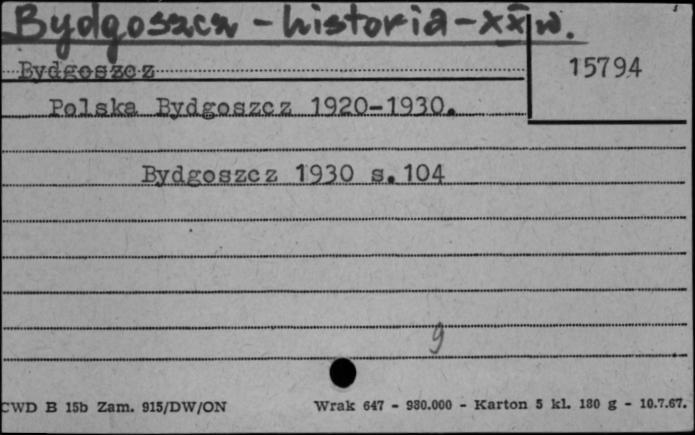 Bydgoszcz - historia - XX w.
Bydgoszcz
15794
Polska Bydgoszcz 1920-1930.
Bydgoszcz 1930 s.104
g
CWD B 15b Zam. 915/DW/ON Wrak 647 - 980.000 - Karton 5 kl. 180 g - 10.7.67.